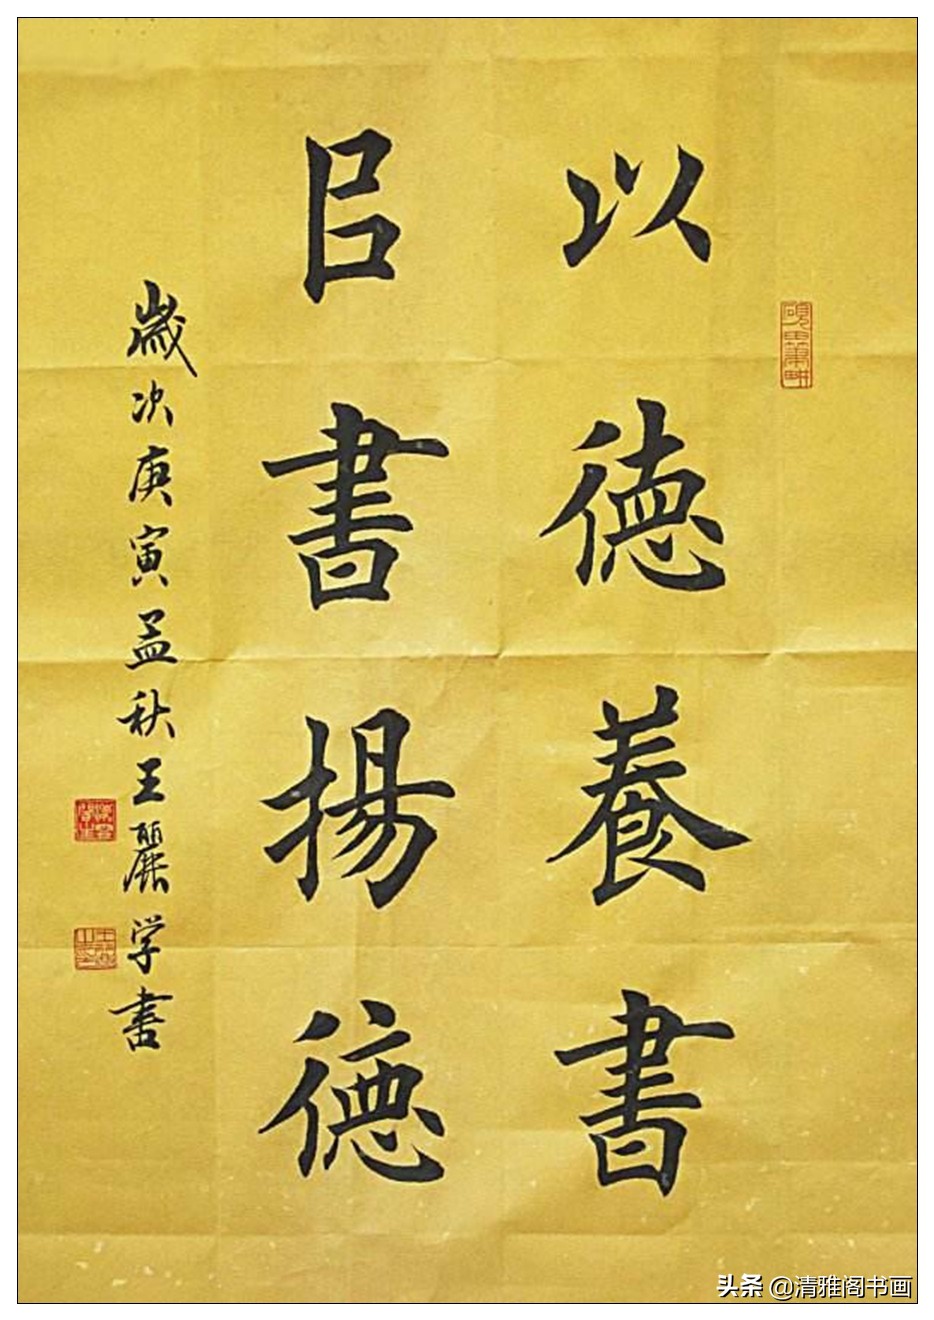 以德養書
㠯書揚德
歲次庚寅孟秋王麗学書
头条 @清雅阁书画